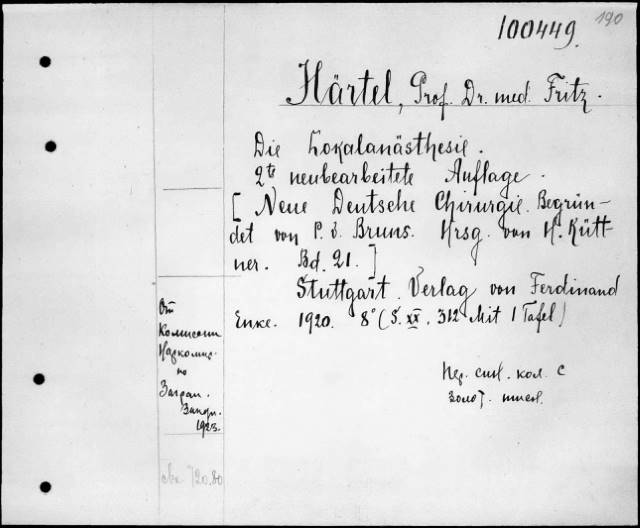 100449.
190
Härtel, Prof. Dr. med. Fritz.
Die Lokalanästhesie.
2te neubearbeitete Auflage.
[Neue Deutsche Chirurgie. Begrün-
det von P. v. Bruns. Hrsg. von H. Kütt-
ner. Bd. 21.]
Stuttgart. Verlag von Ferdinand
Enke. 1920. 8° (S. XX, 312 Mit 1 Tafel)
От
Комиссии
Наркомпр.
по
Загран.
Закуп.
1923.
Пер. син. кол. с
золот. тисн.
720.80